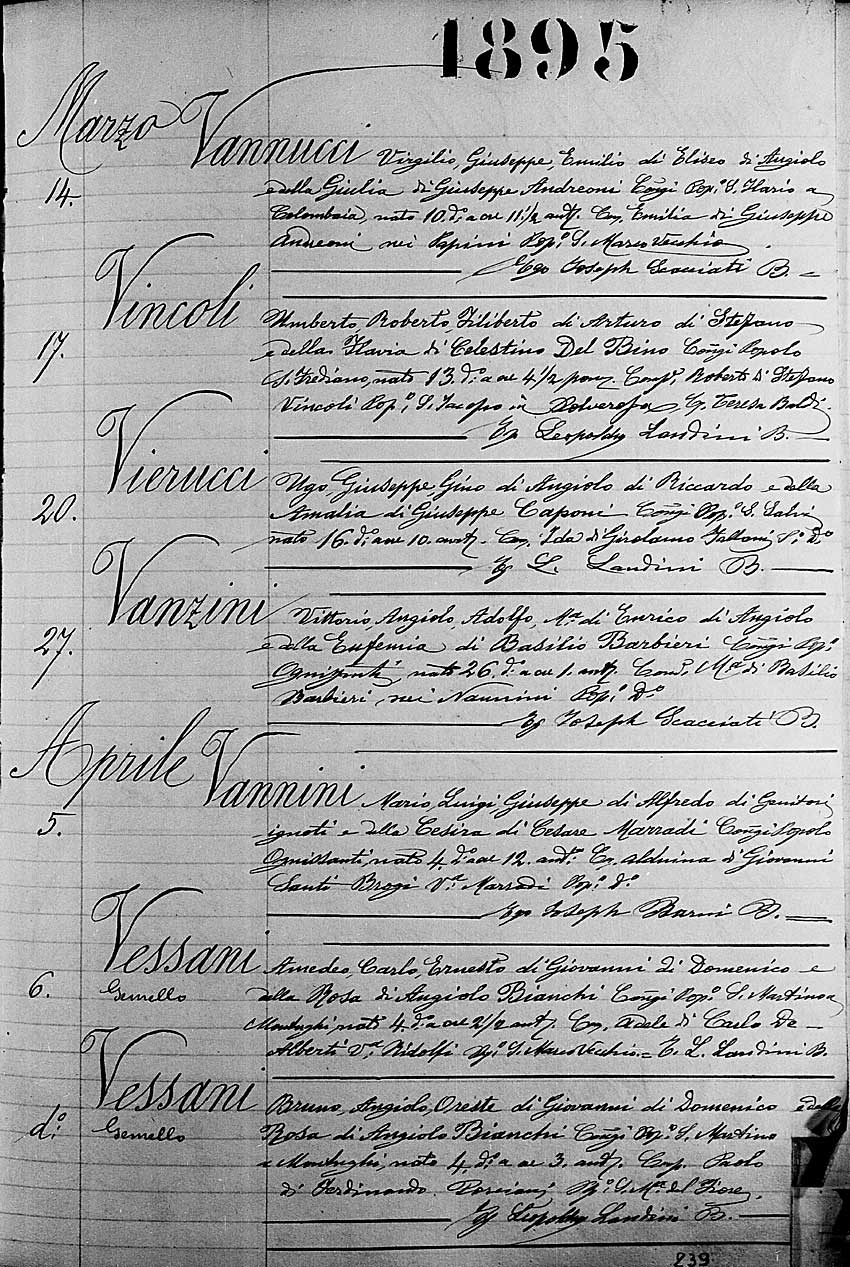 1895
Marzo
14.
Vannucci Virgilio, Giuseppe, Emilio di Eliseo di Angiolo
e della Giulia di Giuseppe Andreoni Coñgi Pop.º S. Ilario a
Colombaia, nato 10. d.º a ore 11.½ ant. Com. Emilia di Giuseppe
Andreoni nei Papini Pop.º S. Marco Vecchio
Ego Joseph Scacciati B.
17.
Vincoli Umberto, Roberto, Filiberto di Arturo di Stefano
e della Flavia di Celestino Del Bino Coñgi Popolo
S. Frediano, nato 13. d.º a ore 4.½ pom. Comp.e Roberto di Stefano
Vincoli Pop.º S. Jacopo in Polverosa C. Teresa Baldi.
Eg Leopoldus Landini B.
20.
Vierucci Ugo, Giuseppe, Gino di Angiolo di Riccardo e della
Amalia di Giuseppe Caponi Coñgi Pop.º S. Salvi
nato 16. d.º a ore 10. ant. Com. Ida di Girolamo S.º D.º
Eg L. Landini B.
27.
Vanzini Vittorio, Angiolo, Adolfo, M.ª di Enrico di Angiolo
e della Eufemia di Basilio Barbieri Coñgi Pop.º
Ognissanti, nato 26. d.º a ore 1. ant. Com. M.ª di Basilio
Barbieri nei Nannini Pop.º D.º
Eg Joseph Scacciati B.
Aprile
5.
Vannini Mario, Luigi, Giuseppe di Alfredo di Genitori
ignoti e della Cesira di Cesare Marradi Coñgi Popolo
Ognissanti, nato 4. d.º a ore 12. ant. C. Alduina di Giovanni
Santi Brogi V.ª Marradi Pop.º d.º
Ego Joseph Barni B.
6.
Vessani Amedeo, Carlo, Ernesto di Giovanni di Domenico e
Gemello
della Rosa di Angiolo Bianchi Coñgi Pop.º S. Martino a
Montughi, nato 4. d.º a ore 2½ ant. Com. Adele di Carlo De
Alberti V.ª Ridolfi Pº S. Marco Vecchio = E. L. Landini B.
d.º
Vessani Bruno, Angiolo, Oreste di Giovanni di Domenico e della
Gemello
Rosa di Angiolo Bianchi Coñgi Pop.º S. Martino
a Montughi, nato 4. d.º a ore 3. ant. Comp. Paolo
di Ferdinando Pº S. M.ª del Fiore
Eg Leopoldus Landini B.
239